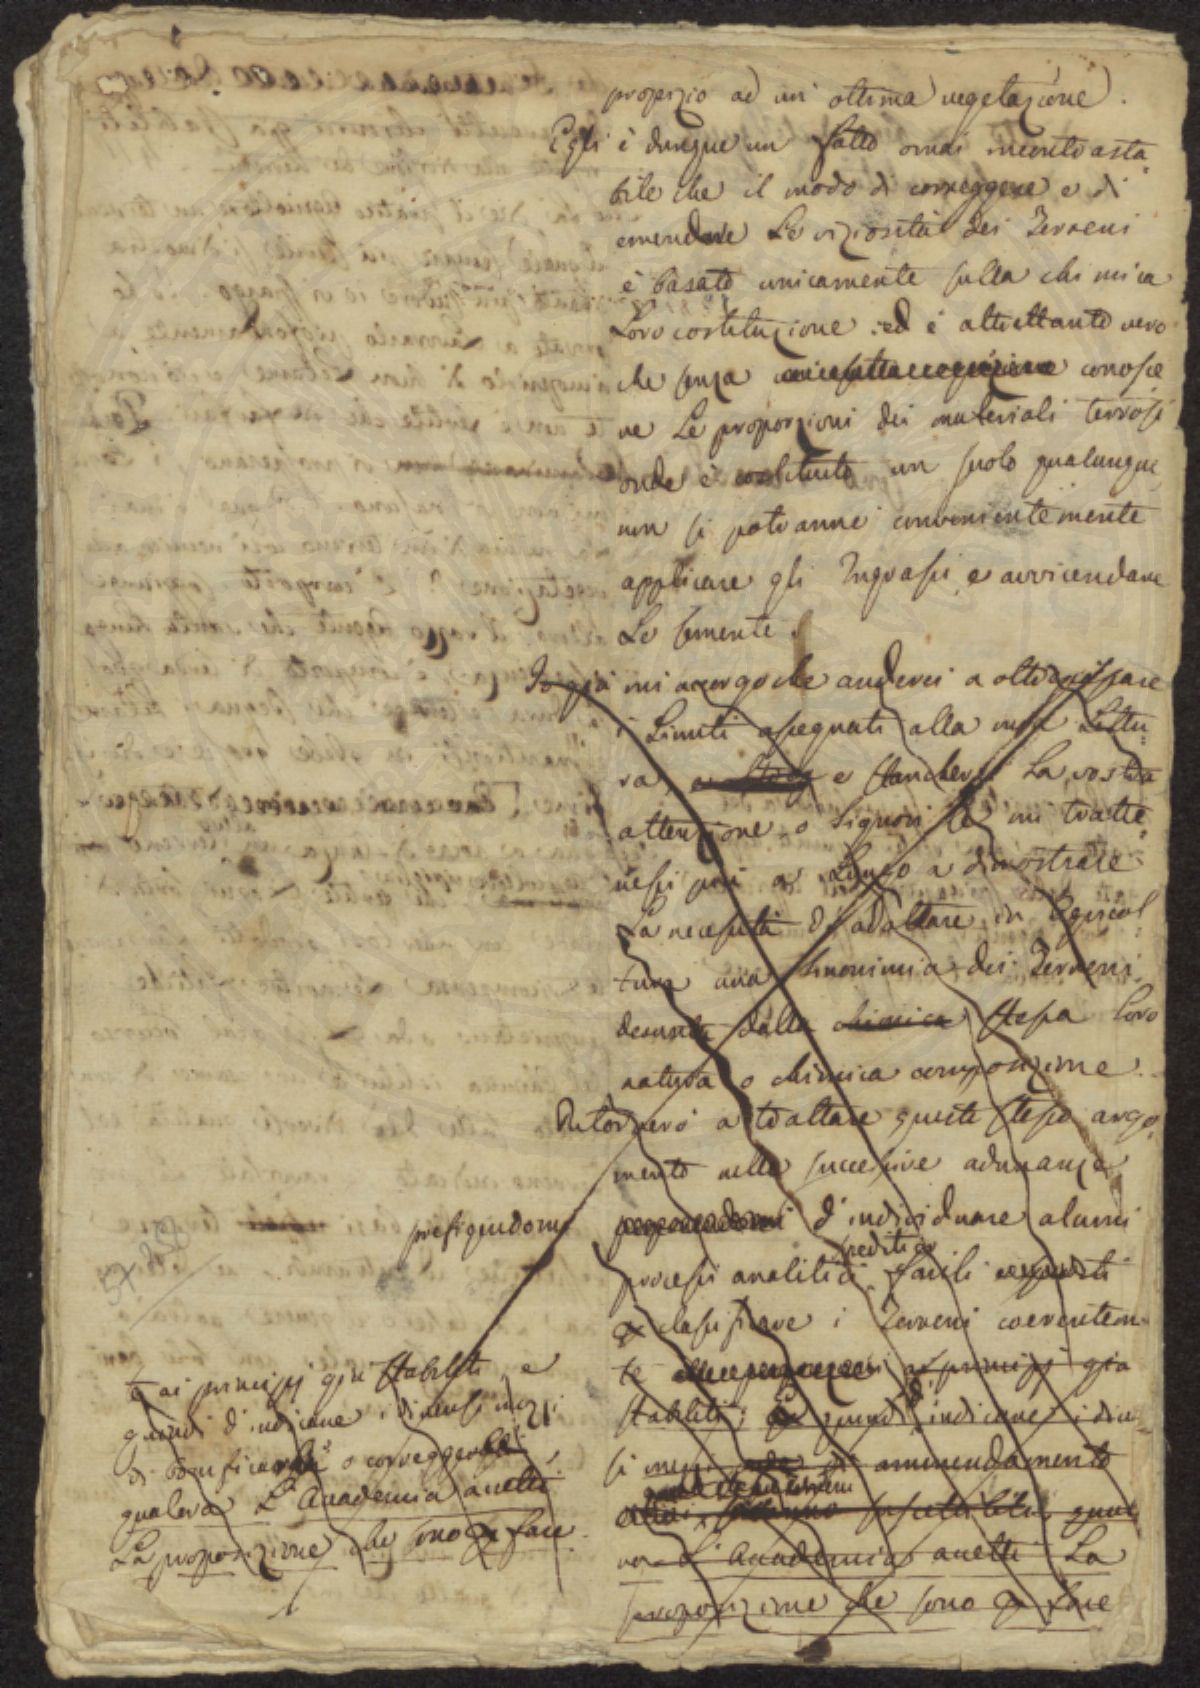 propizio ad un' ottima vegetazione.
Egli è dunque un fatto omai incontrasta
bile che il modo di correggere e di
emendare Le viziosità dei Terreni
è basato unicamente sulla chimica
Loro costituzione: ed è altrettanto vero
che senza conosce
re Le proporzioni dei materiali terrosi
onde è costituito un suolo qualunque
non si potranno convenientemente
applicare gli Ingrassi, e avvicendare
Le semente.
Io già mi accorgo che anderei a oltrepassare
i Limiti assegnati alla mia Lettu=
ra, e stancherei La vostra
attenzione o Signori se mi tratte=
nessi più a Lungo a dimostrare
La necessità di adattare in Agricol
tura una Sinonimia dei Terreni
desunta dalla chimica stessa Loro
natura o chimica composizione.
Ritornerò a trattare questo stesso argo
mento nelle successive adunanze
prefiggendomi
d'individuare alcuni
speditivi
processi analitici facili
a classificare i Terreni coerentemen=
te ai principj già
stabiliti; quindi d'indicare i diver
si mezzi di ammendamento
suscettibili, qualo
ra L'Accademia accetti La
proposizione che sono a fare
te ai principj già stabiliti, e
quindi d'indicare i diversi mezzi
di bonificarli o correggerli
qualora L'Accademia accetti
La proposizione che sono a fare.